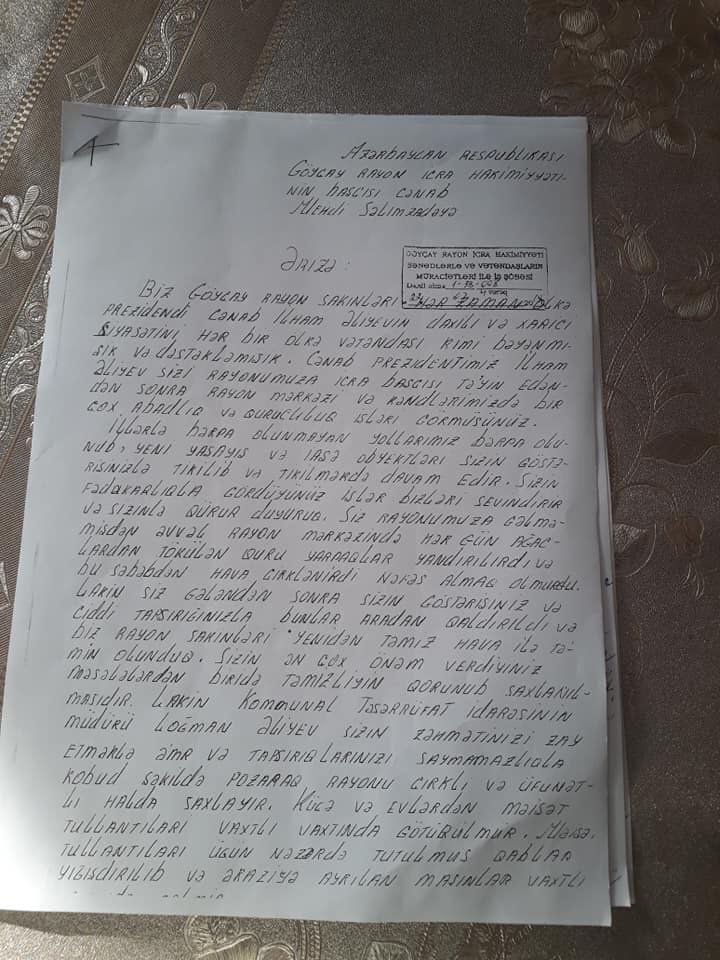 1
Azərbaycan Respublikası
Göycay rayon icra hakimiyyəti-
nin bascısı cənab
Mehdi Səlimzadəyə
Ərizə:
GÖYÇAY RAYON İCRA HAKİMİYYƏTİ
SƏNƏDLƏRLƏ VƏ VƏTƏNDAŞLARIN
MÜRACİƏTLƏRİ İLƏ İŞ ŞÖBƏSİ
Daxil olma
4 vərəq
Biz Göycay rayon sakinləri hər zaman ölkə
prezidendi cənab İlham Əliyevin daxili və xarici
siyasətini hər bir ölkə vətəndası kimi bəyənmi-
sik və dəstəkləmisik. Cənab prezidentimiz İlham
Əliyev sizi rayonumuza icra bascısı təyin edən-
dən sonra rayon mərkəzi və kəndlərimizdə bir
cox abadlıq və quruclıluq isləri görmüsünüz.
İllərlə bərpa olunmayan yollarımız bərpa olu-
nub, yeni yasayıs və iasə obyektləri sizin göstə-
risinizlə tikilib və tikilməkdə davam edir. Sizin
fədakarlıqla gördüyünüz islər bizləri sevindirir
və sizinlə qürur duyuruq. Siz rayonumuza gəlmə-
misdən əvvəl rayon mərkəzində hər gün ağac-
lardan tökülən quru yarpaqlar yandırılırdı və
bu səbəbdən hava cirklənirdi nəfəs almaq olmurdu.
Lakin siz gələndən sonra sizin göstərisiniz və
ciddi tapsırığınızla bunlar aradan qaldırıldı və
biz rayon sakinləri yenidən təmiz hava ilə tə-
min olunduq. Sizin ən cox önəm verdiyiniz
məsələlərdən biridə təmizliyin qorunub saxlanıl-
masıdır. Lakin Komunal Təsərrüfat idarəsinin
müdürü Loğman Əliyev sizin zəhmətinizi zay
etməklə əmr və tapsırıqlarınızı saymamazlıqla
kobud səkildə pozaraq rayonu cirkli və üfunət-
li halda saxlayır. Kücə və evlərdən məisət
tullantıları vaxtlı vaxtında götürülmür. Məisə.
tullantıları ücün nəzərdə tutulmus qablar
yıgısdırılıb və əraziyə ayrılan masınlar vaxtlı